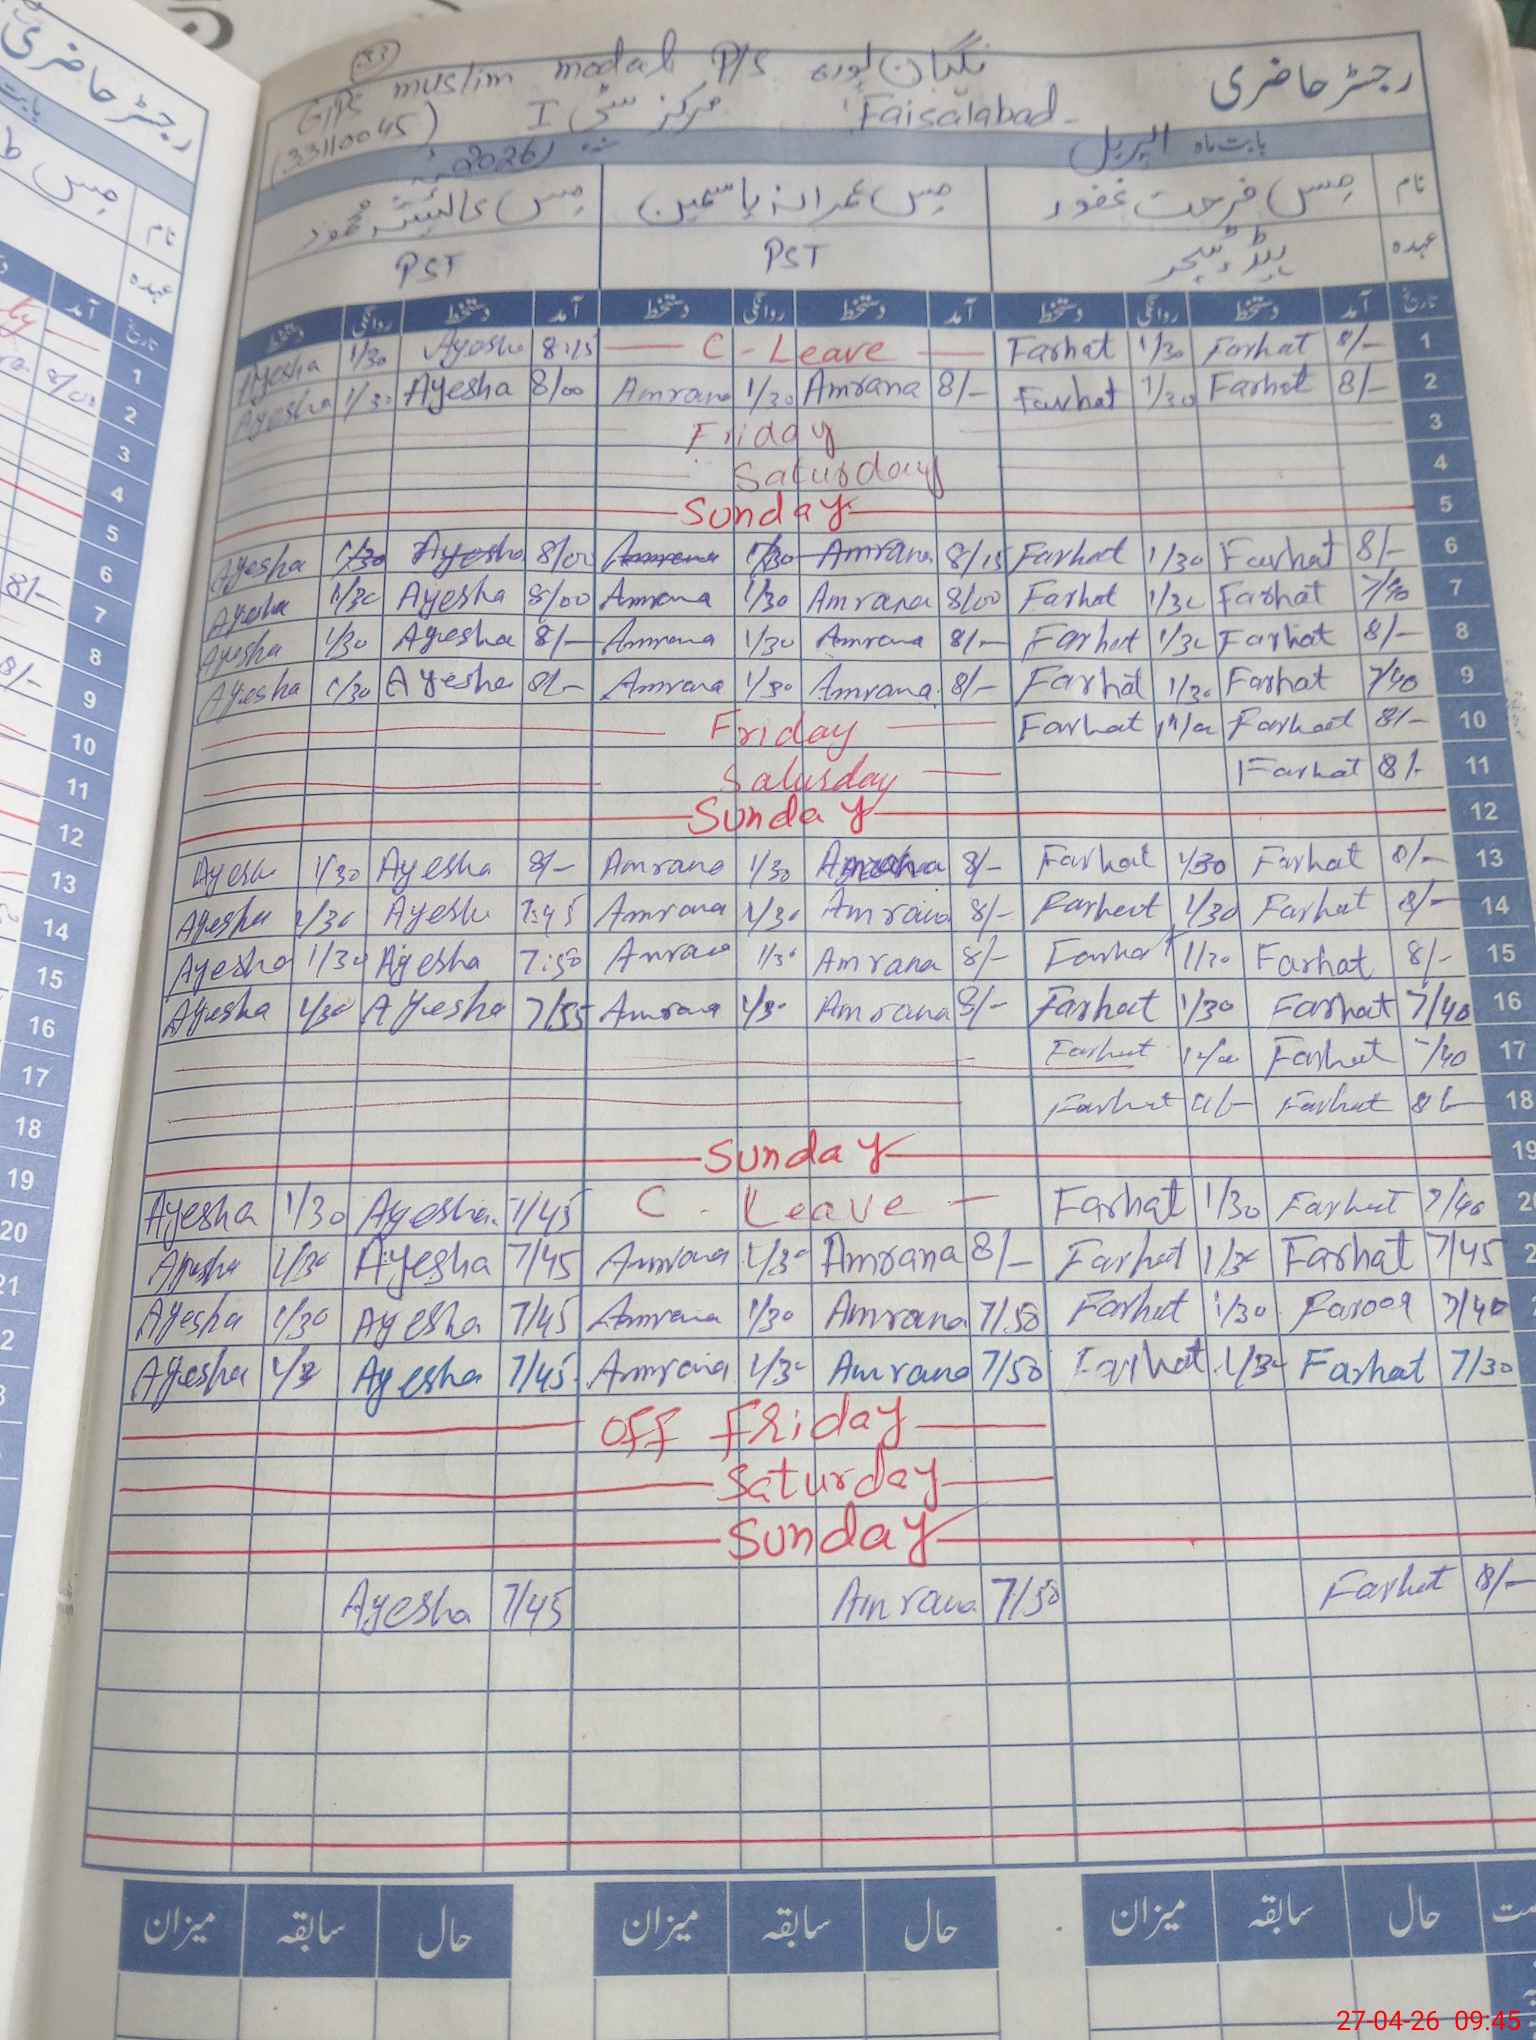 muslim model P/S نگہبان پورہ رجسٹر حاضری
(33110045) مرکز سٹی I Faisalabad
بابت ماہ اپریل 2026
نام مس فرحت غفور مس عمرانہ یاسمین مس عائشہ محمود
عہدہ ہیڈ ٹیچر PST PST
تاریخ آمد دستخط روانگی دستخط آمد دستخط روانگی دستخط آمد دستخط روانگی دستخط
Ayesha 1/30 Ayesha 8:15 C - Leave Farhat 1/30 Farhat 8/- 1
Ayesha 1/30 Ayesha 8/00 Amrana 1/30 Amrana 8/- Farhat 1/30 Farhat 8/- 2
Friday 3
Saturday 4
Sunday 5
Ayesha 1/30 Ayesha 8/00 Amrana 1/30 Amrana 8/15 Farhat 1/30 Farhat 8/- 6
Ayesha 1/30 Ayesha 8/00 Amrana 1/30 Amrana 8/00 Farhat 1/30 Farhat 7
Ayesha 1/30 Ayesha 8/- Amrana 1/30 Amrana 8/- Farhat 1/30 Farhat 8/- 8
Ayesha 1/30 Ayesha 8/- Amrana 1/30 Amrana 8/- Farhat 1/30 Farhat 7/40 9
Friday Farhat Farhat 8/- 10
Saturday Farhat 8/- 11
Sunday 12
Ayesha 1/30 Ayesha 8/- Amrana 1/30 Amrana 8/- Farhat 1/30 Farhat 8/- 13
Ayesha 1/30 Ayesha 7:45 Amrana 1/30 Amrana 8/- Farhat 1/30 Farhat 8/- 14
Ayesha 1/30 Ayesha 7:50 Amrana 1/30 Amrana 8/- Farhat 1/30 Farhat 8/- 15
Ayesha 1/30 Ayesha 7/55 Amrana 1/30 Amrana 8/- Farhat 1/30 Farhat 7/40 16
Farhat Farhat 7/40 17
Farhat Farhat 8/- 18
Sunday 19
Ayesha 1/30 Ayesha 7/45 C - Leave Farhat 1/30 Farhat 7/40
Ayesha 1/30 Ayesha 7/45 Amrana 1/30 Amrana 8/- Farhat 1/30 Farhat 7/45
Ayesha 1/30 Ayesha 7/45 Amrana 1/30 Amrana 7/50 Farhat 1/30 7/40
Ayesha 1/30 Ayesha 7/45 Amrana 1/30 Amrana 7/50 Farhat 1/30 Farhat 7/30
OFF Friday
Saturday
Sunday
Ayesha 7/45 Amrana 7/50 Farhat 8/-
حال سابقہ میزان حال سابقہ میزان حال سابقہ میزان
27-04-26 09:45
رجسٹر حاضری
بابت
نام مس
عہدہ
تاریخ آمد
1
2
3
4
5
6
8/- 7
8
8/- 9
10
11
12
13
14
15
16
17
18
19
20
21